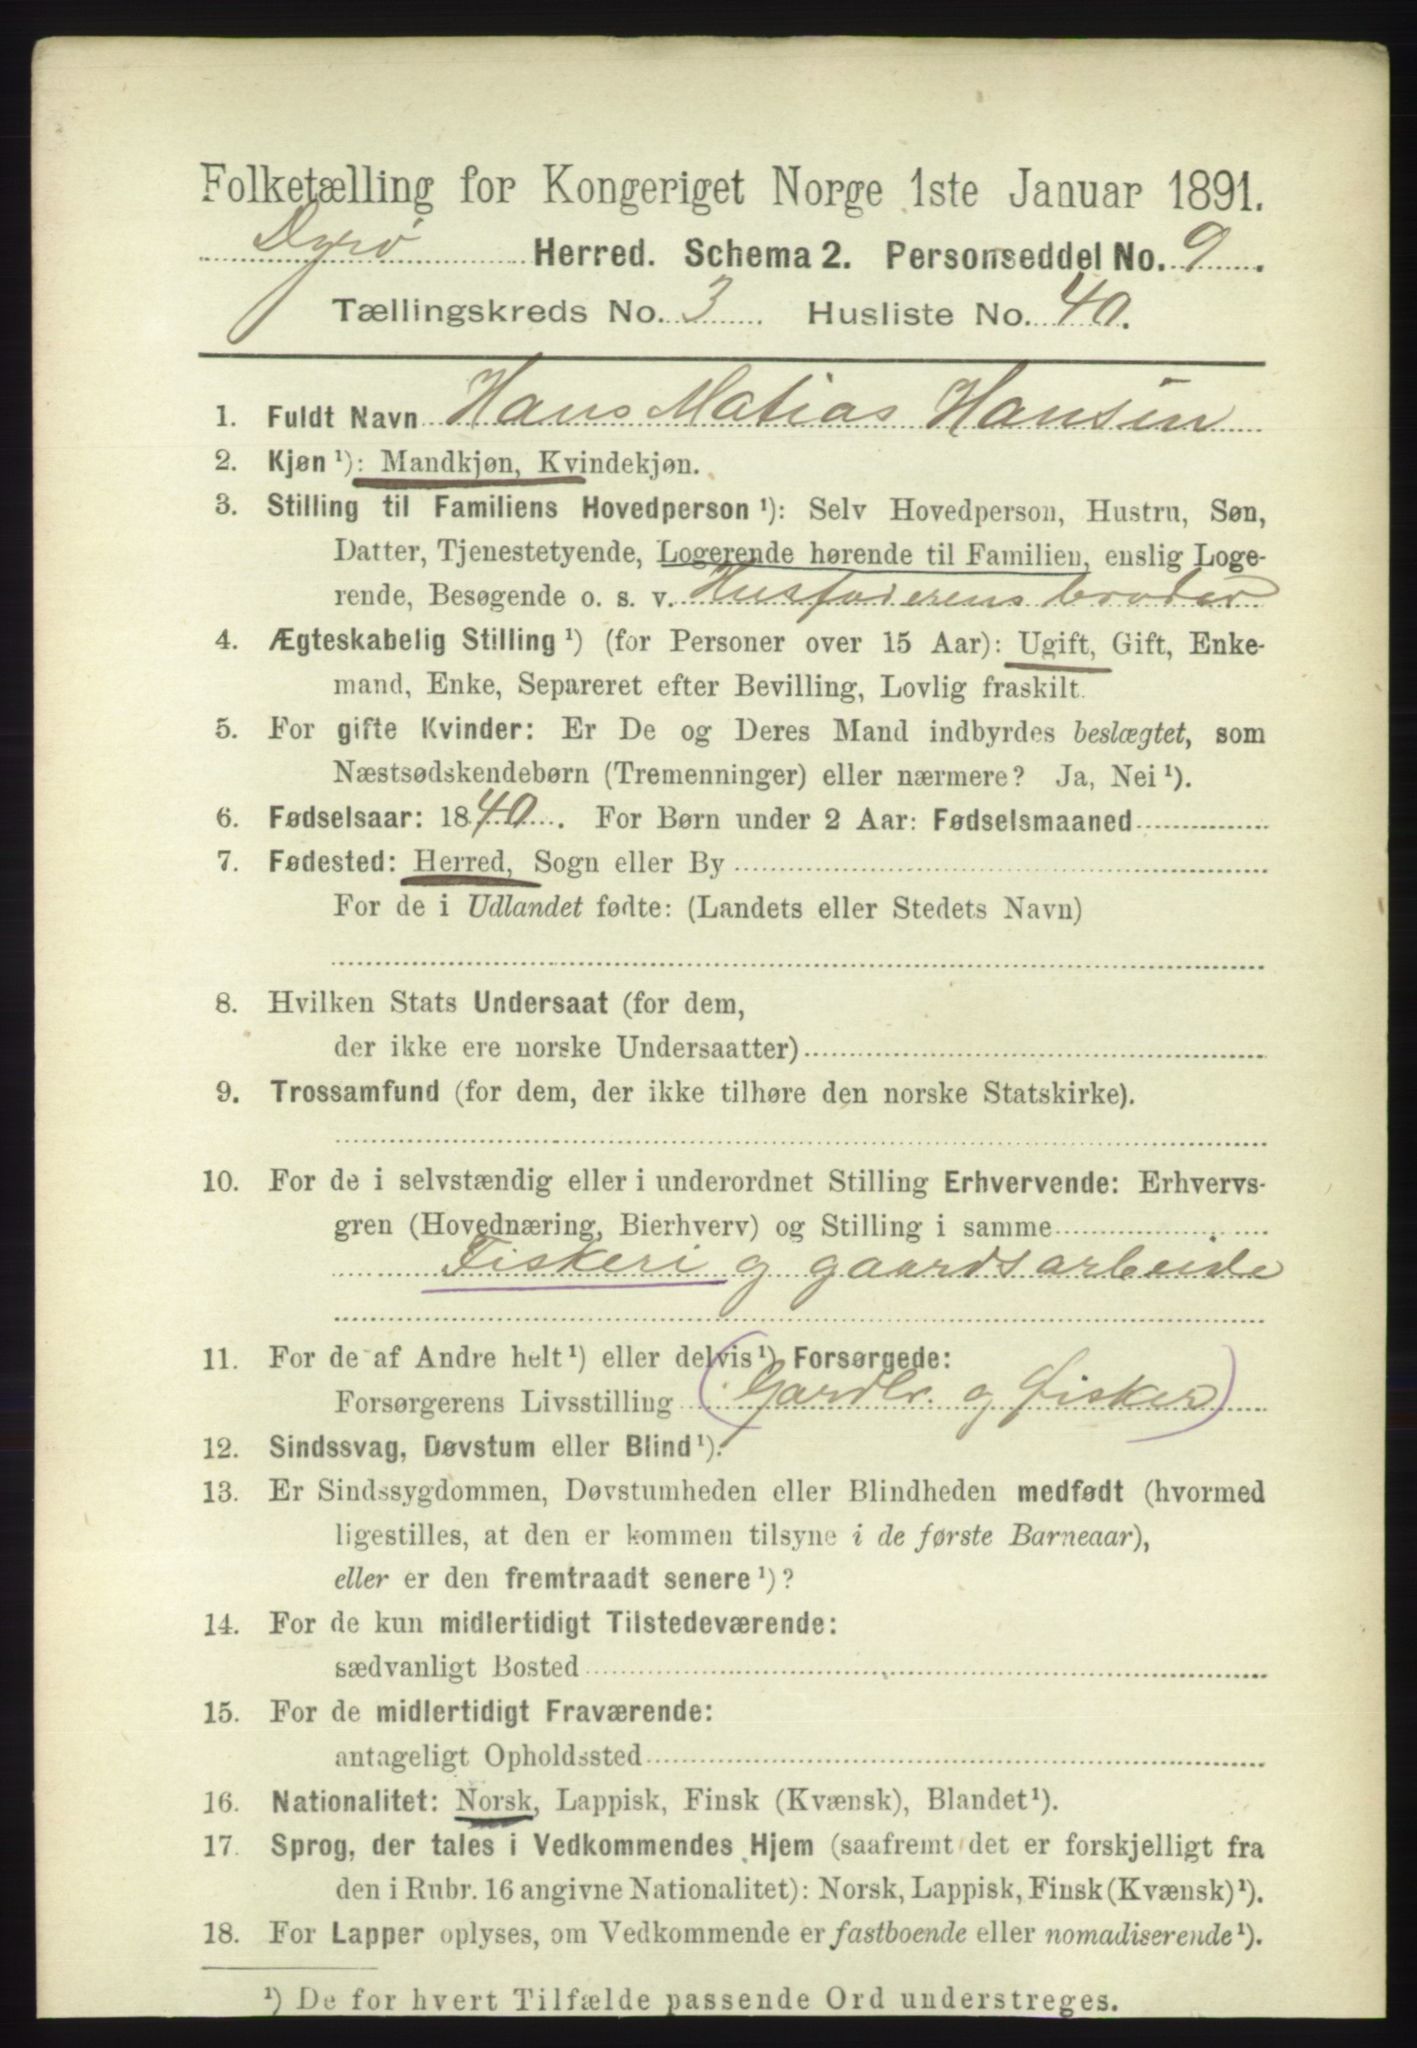 Folketælling for Kongeriget Norge 1ste Januar 1891.
Dyrø Herred. Schema 2. Personseddel No. 9.
Tællingskreds No. 3 Husliste No. 40.
1. Fuldt Navn Hans Matias Hansin
2. Kjøn ¹): Mandkjøn, Kvindekjøn.
3. Stilling til Familiens Hovedperson ¹): Selv Hovedperson, Hustru, Søn,
Datter, Tjenestetyende, Logerende hørende til Familien, enslig Loge-
rende, Besøgende o. s. v. Husfaderens broder
4. Ægteskabelig Stilling ¹) (for Personer over 15 Aar): Ugift, Gift, Enke-
mand, Enke, Separeret efter Bevilling, Lovlig fraskilt.
5. For gifte Kvinder: Er De og Deres Mand indbyrdes beslægtet, som
Næstsødskendebørn (Tremenninger) eller nærmere? Ja, Nei ¹).
6. Fødselsaar: 1840. For Børn under 2 Aar: Fødselsmaaned
7. Fødested: Herred, Sogn eller By
For de i Udlandet fødte: (Landets eller Stedets Navn)
8. Hvilken Stats Undersaat (for dem,
der ikke ere norske Undersaatter)
9. Trossamfund (for dem, der ikke tilhøre den norske Statskirke).
10. For de i selvstændig eller i underordnet Stilling Erhvervende: Erhvervs-
gren (Hovednæring, Bierhverv) og Stilling i samme
Fiskeri og gaardsarbeide
11. For de af Andre helt ¹) eller delvis ¹) Forsørgede:
Forsørgerens Livsstilling (Gardbr. og fisker)
12. Sindssvag, Døvstum eller Blind ¹).
13. Er Sindssygdommen, Døvstumheden eller Blindheden medfødt (hvormed
ligestilles, at den er kommen tilsyne i de første Barneaar),
eller er den fremtraadt senere ¹)?
14. For de kun midlertidigt Tilstedeværende:
sædvanligt Bosted
15. For de midlertidigt Fraværende:
antageligt Opholdssted
16. Nationalitet: Norsk, Lappisk, Finsk (Kvænsk), Blandet ¹).
17. Sprog, der tales i Vedkommendes Hjem (saafremt det er forskjelligt fra
den i Rubr. 16 angivne Nationalitet): Norsk, Lappisk, Finsk (Kvænsk) ¹).
18. For Lapper oplyses, om Vedkommende er fastboende eller nomadiserende ¹).
¹) De for hvert Tilfælde passende Ord understreges.